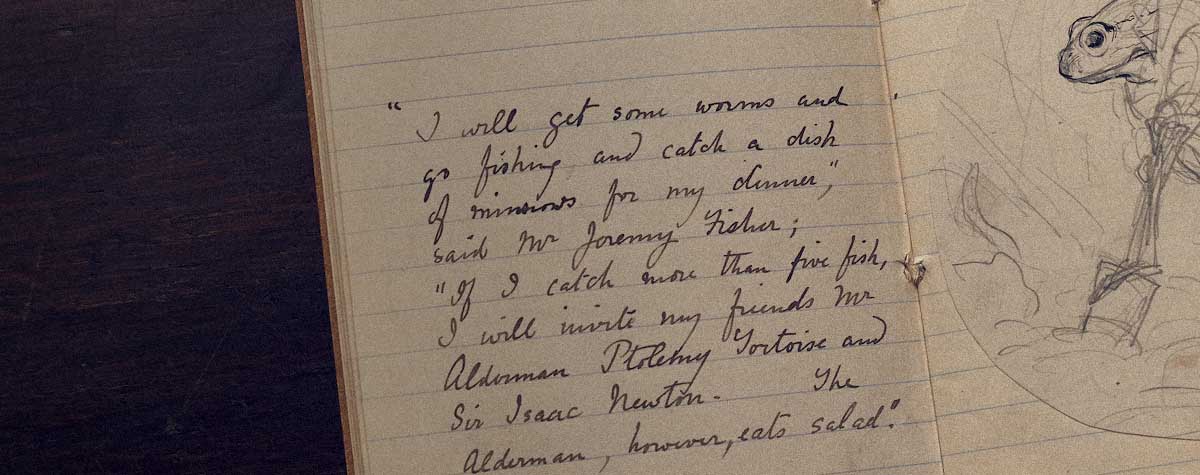 "I will get some worms and
go fishing and catch a dish
of minnows for my dinner,"
said Mr Jeremy Fisher;
"If I catch more than five fish,
I will invite my friends Mr
Alderman Ptolemy Tortoise and
Sir Isaac Newton. The
Alderman, however, eats salad."